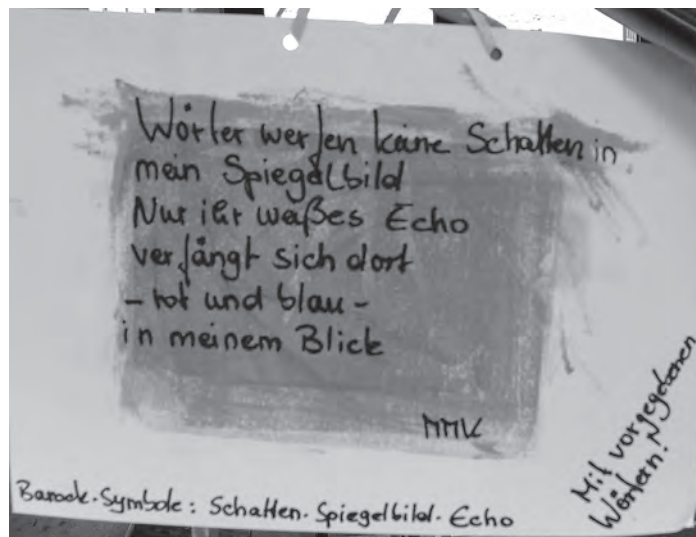 Wörter werfen keine Schatten in
mein Spiegelbild
Nur ihr weißes Echo
verfängt sich dort
- rot und blau -
in meinem Blick
MMK
Barock-Symbole: Schatten-Spiegelbild-Echo
Mit vorgegebenen
Wörtern!